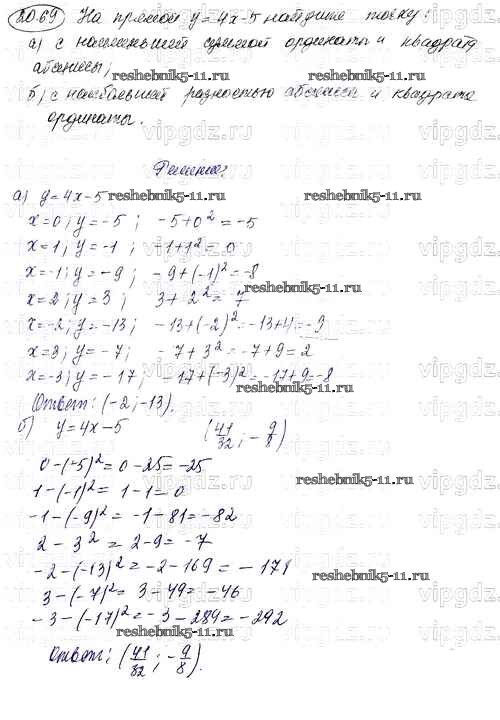 20.69 На прямой y=4x-5 найдите точку:
а) с наименьшей суммой ординаты и квадрата
абсциссы;
reshebnik5-11.ru
б) с наибольшей разностью абсциссы и квадрата
ординаты.
reshebnik5-11.ru
Решение:
а) y=4x-5 reshebnik5-11.ru reshebnik5-11.ru
x=0; y=-5; -5+0²=-5
x=1; y=-1; -1+1²=0
x=-1; y=-9; -9+(-1)²=-8
reshebnik5-11.ru
x=2; y=3; 3+2²=7
x=-2; y=-13; -13+(-2)²=-13+4=-9
x=3; y=-7; -7+3²=-7+9=2
x=-3; y=-17; -17+(-3)²=-17+9=-8
reshebnik5-11.ru
Ответ: (-2; -13).
б) y=4x-5 (41/32; -9/8)
0-(-5)²=0-25=-25
reshebnik5-11.ru
1-(-1)²=1-1=0
-1-(-9)²=-1-81=-82
reshebnik5-11.ru
2-3²=2-9=-7
-2-(-13)²=-2-169=-171
reshebnik5-11.ru
3-(-7)²=3-49=-46
-3-(-17)²=-3-289=-292
reshebnik5-11.ru
Ответ: (41/32; -9/8).